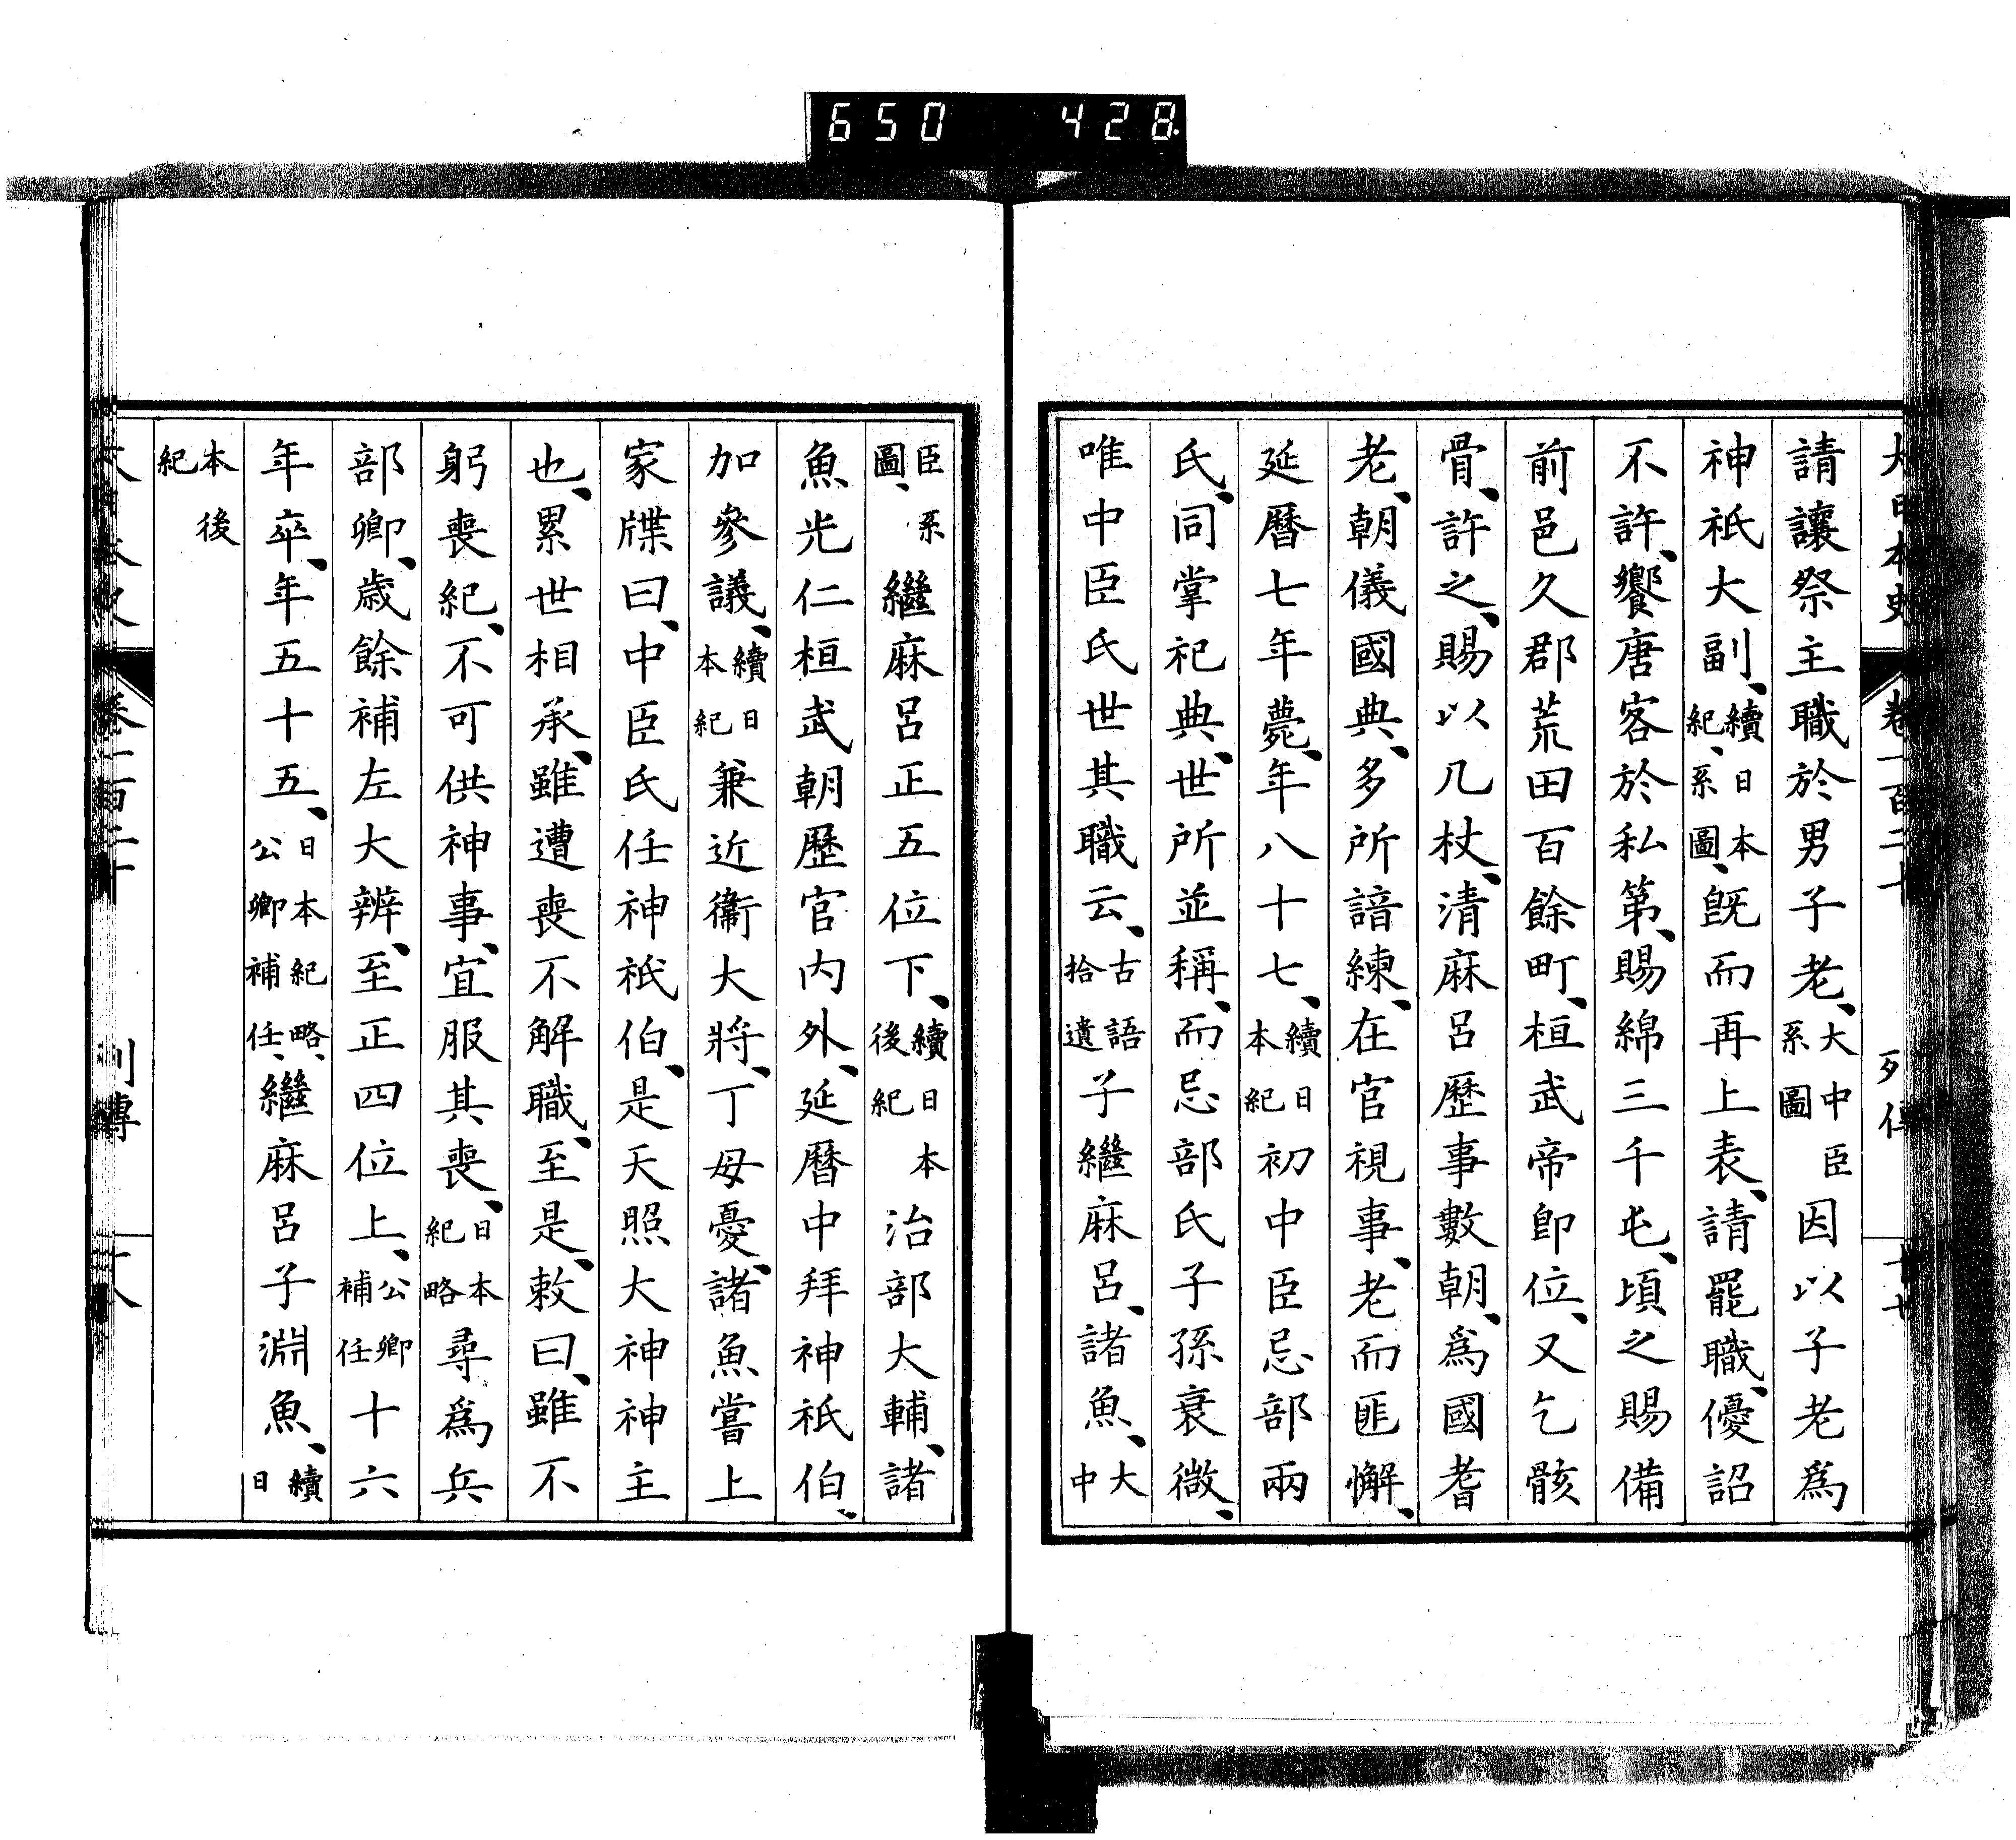 650 428
大日本史 卷一百二十 列傳 十七
請讓祭主職於男子老、大中臣系圖因以子老爲
神祇大副、續日本紀、系圖、既而再上表、請罷職、優詔
不許、饗唐客於私第、賜綿三千屯、頃之賜備
前邑久郡荒田百餘町、桓武帝卽位、又乞骸
骨、許之、賜以几杖、清麻呂歷事數朝、爲國耆
老、朝儀國典、多所諳練、在官視事、老而匪懈、
延曆七年薨、年八十七、續日本紀初中臣忌部兩
氏、同掌祀典、世所並稱、而忌部氏子孫衰微、
唯中臣氏世其職云、古語拾遺子繼麻呂、諸魚、大中
臣系圖、繼麻呂正五位下、續日本後紀治部大輔、諸
魚光仁桓武朝歷官內外、延曆中拜神祇伯、
加參議、續日本紀兼近衞大將、丁母憂、諸魚嘗上
家牒曰、中臣氏任神祇伯、是天照大神神主
也、累世相承、雖遭喪不解職、至是、敕曰、雖不
躬喪紀、不可供神事、宜服其喪、日本紀略尋爲兵
部卿、歲餘補左大辨、至正四位上、公卿補任十六
年卒、年五十五、日本紀略、公卿補任、繼麻呂子淵魚、續日
本後紀
卷一百二十 列傳